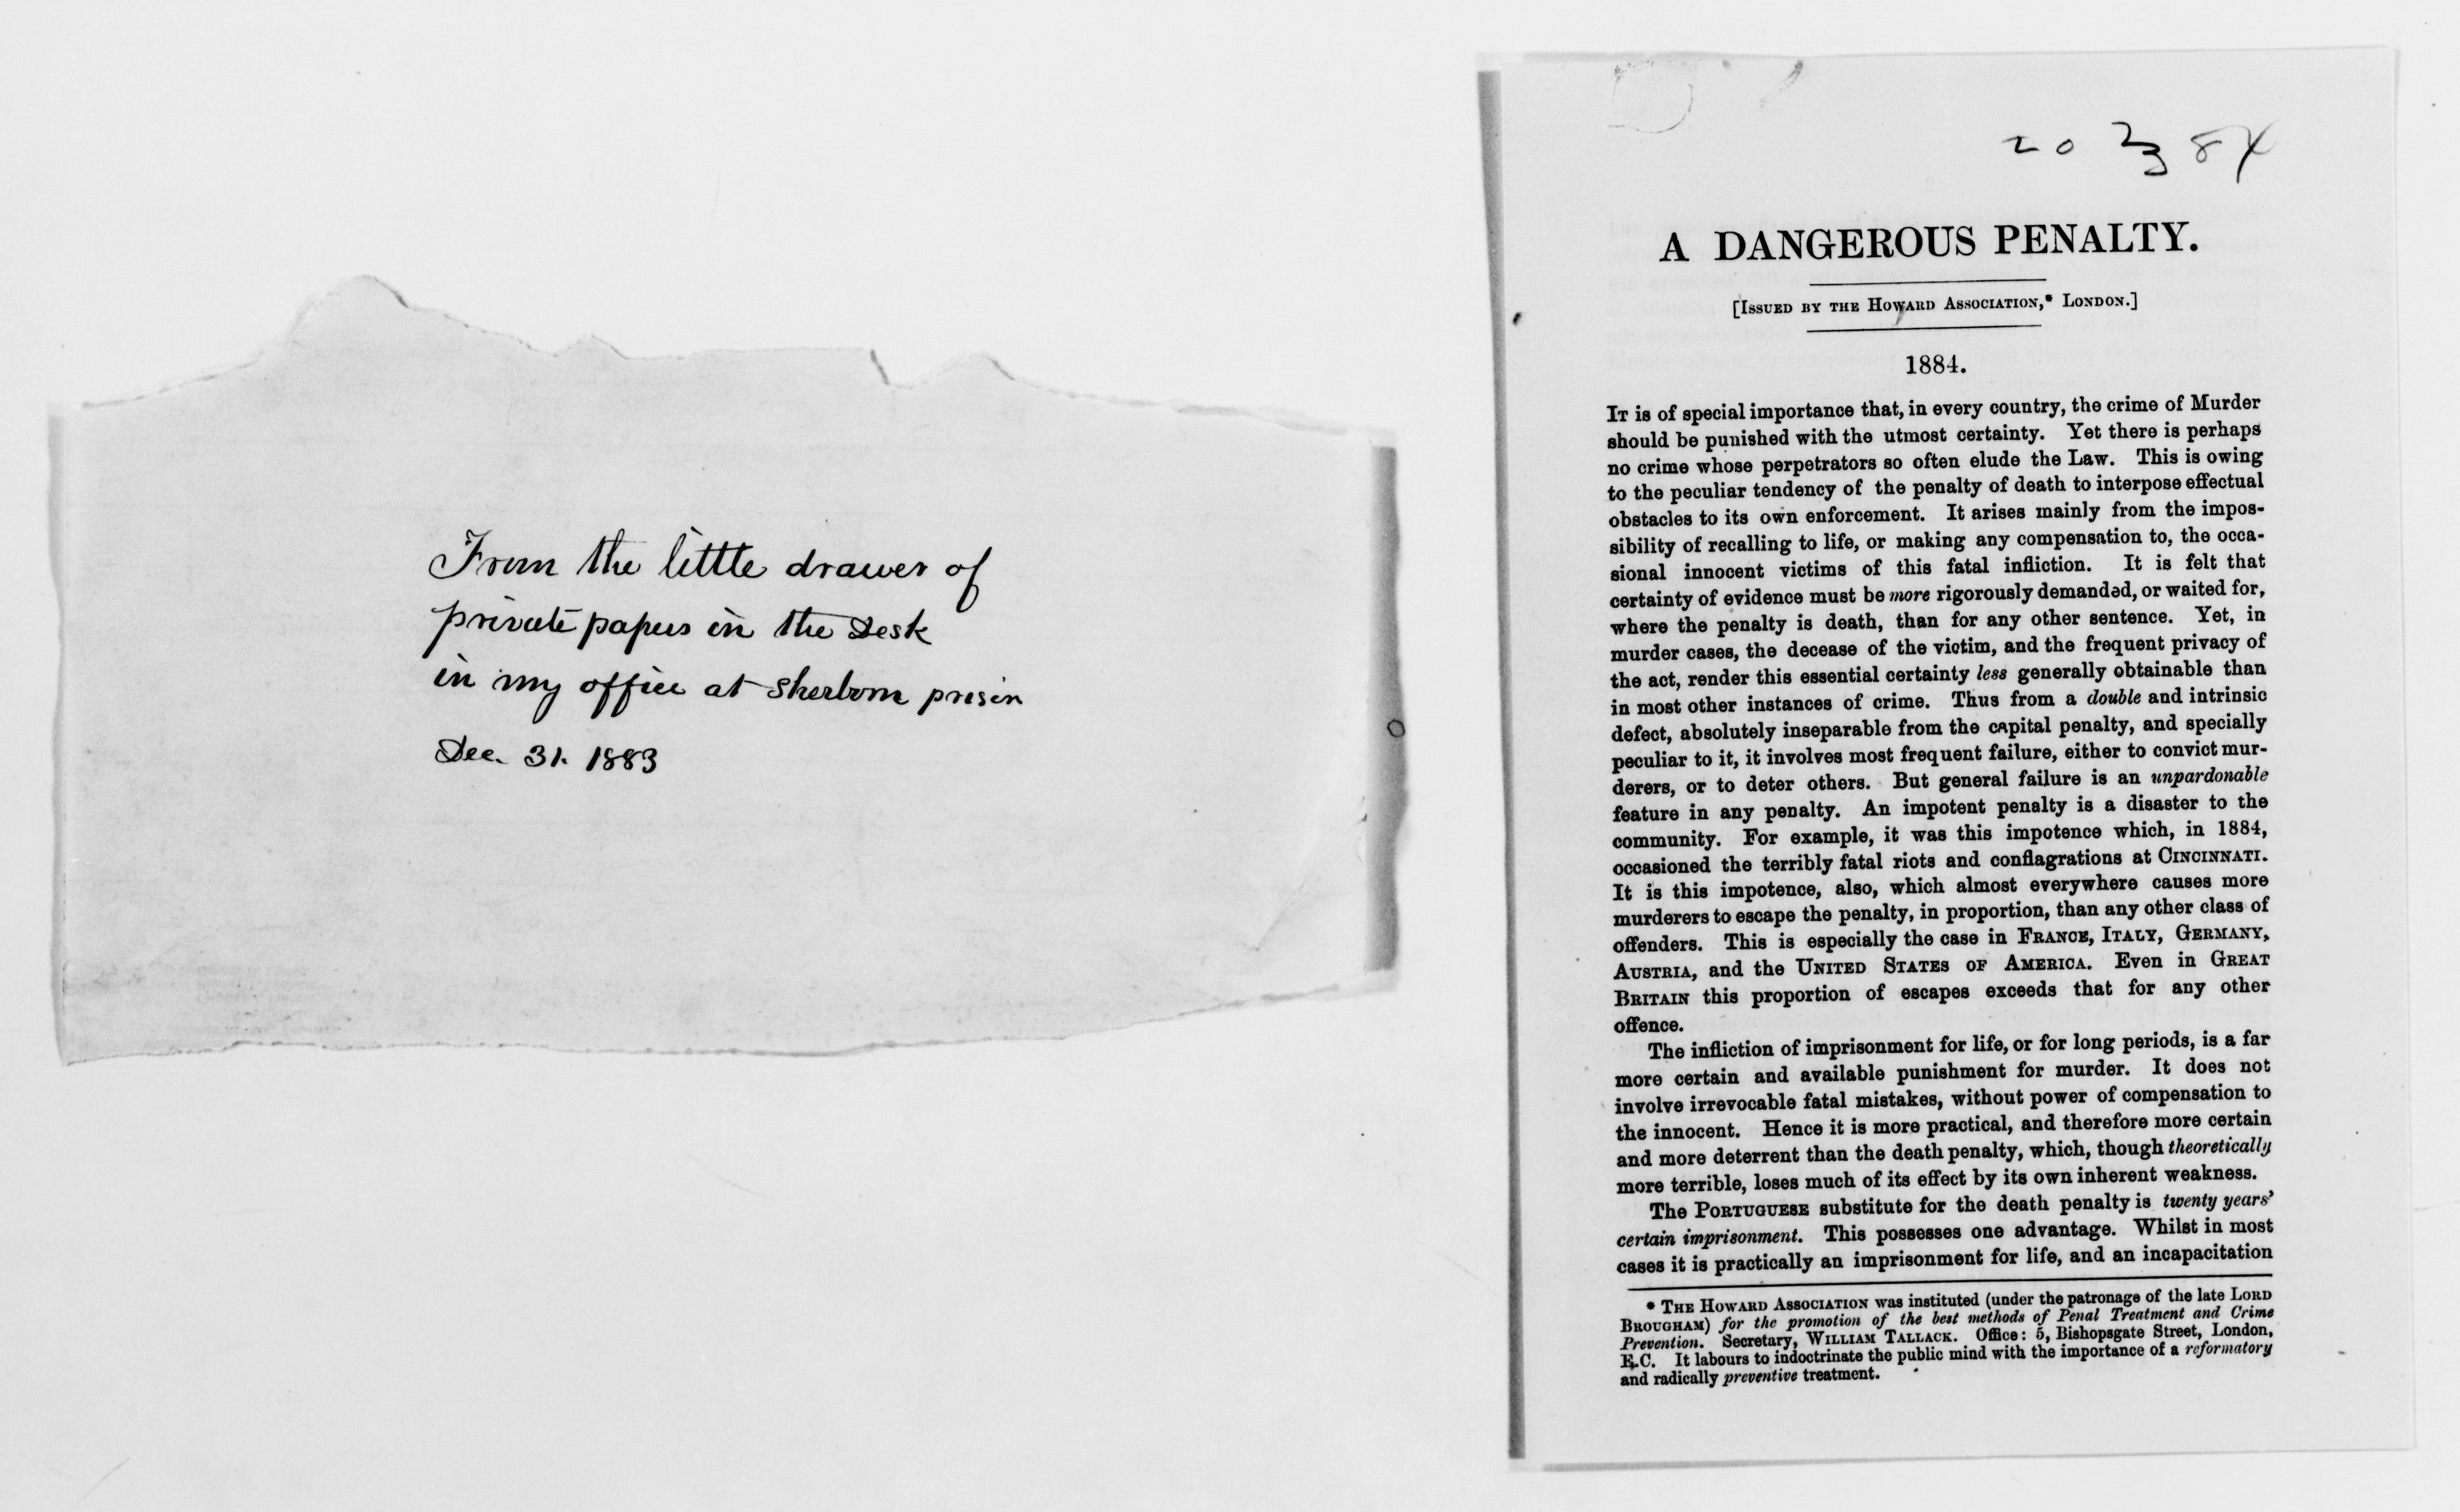 From the little drawer of
private papers in the Desk
in my office at Sherborn prison
Dec. 31. 1883
A DANGEROUS PENALTY.
[ISSUED BY THE HOWARD ASSOCIATION,* LONDON.]
1884.
IT is of special importance that, in every country, the crime of Murder
should be punished with the utmost certainty. Yet there is perhaps
no crime whose perpetrators so often elude the Law. This is owing
to the peculiar tendency of the penalty of death to interpose effectual
obstacles to its own enforcement. It arises mainly from the impos-
sibility of recalling to life, or making any compensation to, the occa-
sional innocent victims of this fatal infliction. It is felt that
certainty of evidence must be more rigorously demanded, or waited for,
where the penalty is death, than for any other sentence. Yet, in
murder cases, the decease of the victim, and the frequent privacy of
the act, render this essential certainty less generally obtainable than
in most other instances of crime. Thus from a double and intrinsic
defect, absolutely inseparable from the capital penalty, and specially
peculiar to it, it involves most frequent failure, either to convict mur-
derers, or to deter others. But general failure is an unpardonable
feature in any penalty. An impotent penalty is a disaster to the
community. For example, it was this impotence which, in 1884,
occasioned the terribly fatal riots and conflagrations at CINCINNATI.
It is this impotence, also, which almost everywhere causes more
murderers to escape the penalty, in proportion, than any other class of
offenders. This is especially the case in FRANCE, ITALY, GERMANY,
AUSTRIA, and the UNITED STATES OF AMERICA. Even in GREAT
BRITAIN this proportion of escapes exceeds that for any other
offence.
The infliction of imprisonment for life, or for long periods, is a far
more certain and available punishment for murder. It does not
involve irrevocable fatal mistakes, without power of compensation to
the innocent. Hence it is more practical, and therefore more certain
and more deterrent than the death penalty, which, though theoretically
more terrible, loses much of its effect by its own inherent weakness.
The PORTUGUESE substitute for the death penalty is twenty years'
certain imprisonment. This possesses one advantage. Whilst in most
cases it is practically an imprisonment for life, and an incapacitation
* THE HOWARD ASSOCIATION was instituted (under the patronage of the late LORD
BROUGHAM) for the promotion of the best methods of Penal Treatment and Crime
Prevention. Secretary, WILLIAM TALLACK. Office: 5, Bishopsgate Street, London,
E.C. It labours to indoctrinate the public mind with the importance of a reformatory
and radically preventive treatment.